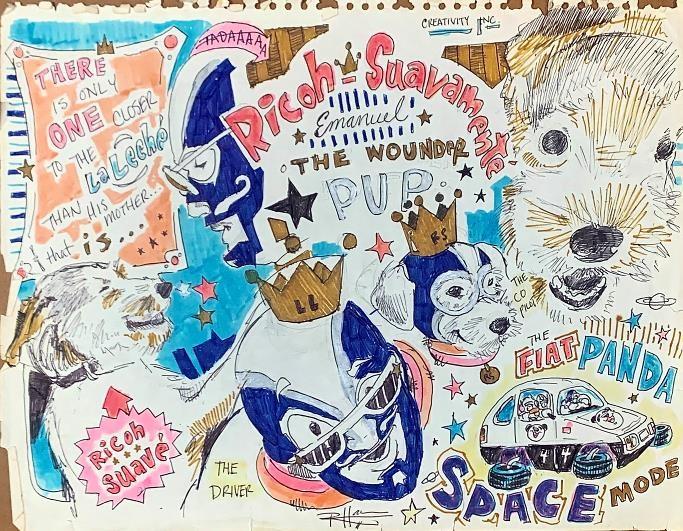 CREATIVITY INC
TADAAAAA
THERE
IS ONLY
ONE CLOSER
TO THE
La Leche
THAN HIS
MOTHER...
& that is...
Ricoh-Suavamente
Emanuel
THE WOUNDER
PUP
LL
RS
THE
CO
PILOT
THE
FIAT PANDA
44
SPACE MODE
Ricoh
Suavé
THE
DRIVER